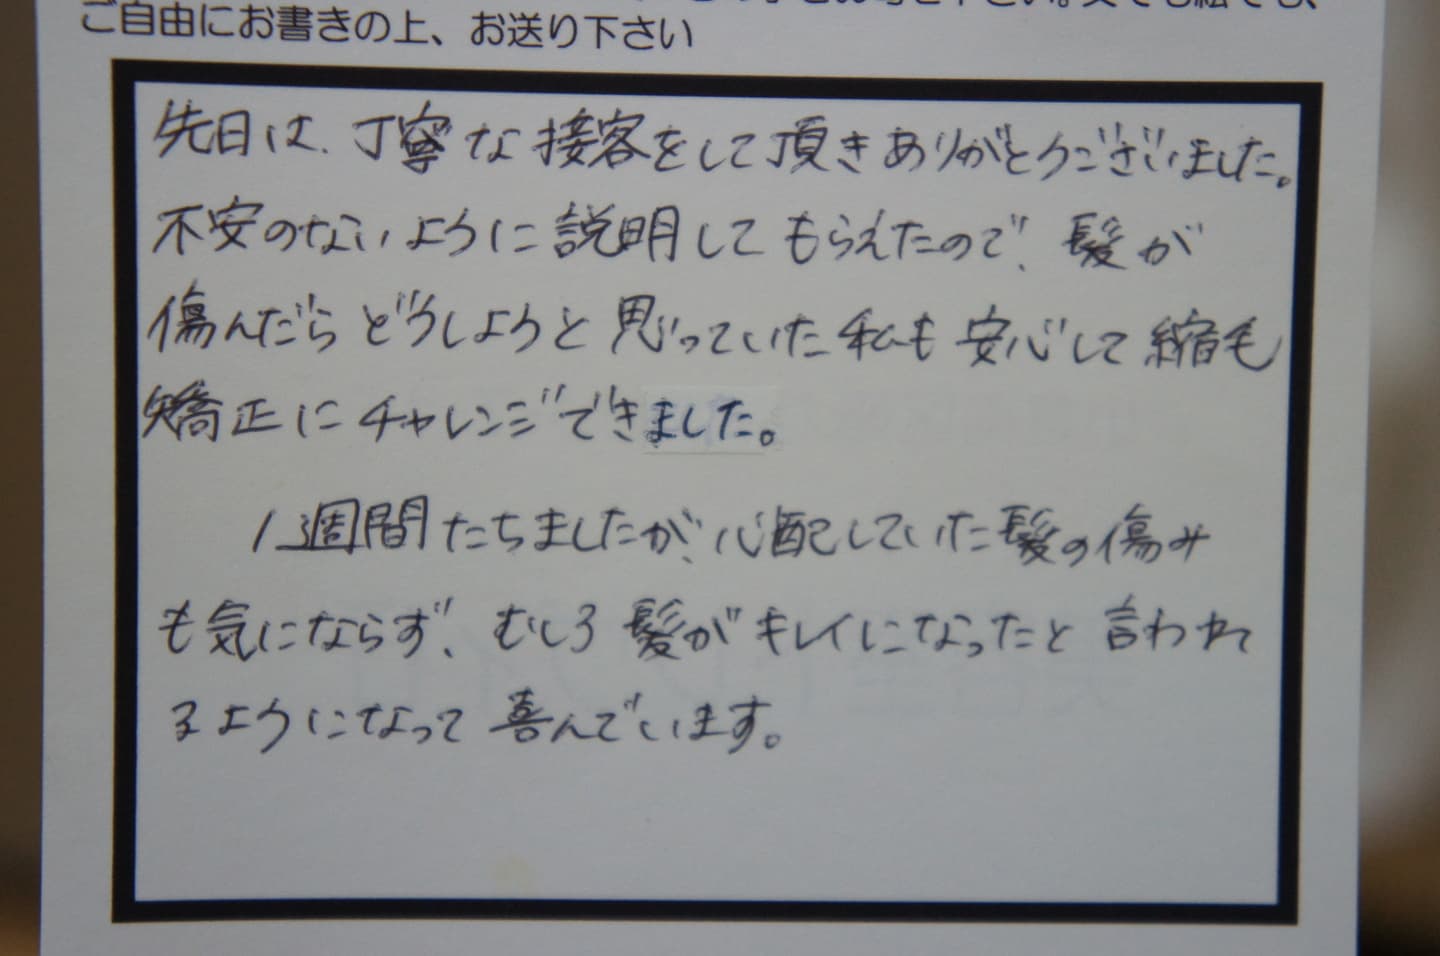 ご自由にお書きの上、お送り下さい
先日は、丁寧な接客をして頂きありがとうございました。
不安のないように説明してもらえたので、髪が
傷んだらどうしようと思っていた私も安心して縮毛
矯正にチャレンジできました。
1週間たちましたが、心配していた髪の傷み
も気にならず、むしろ髪がキレイになったと言われ
るようになって喜んでいます。